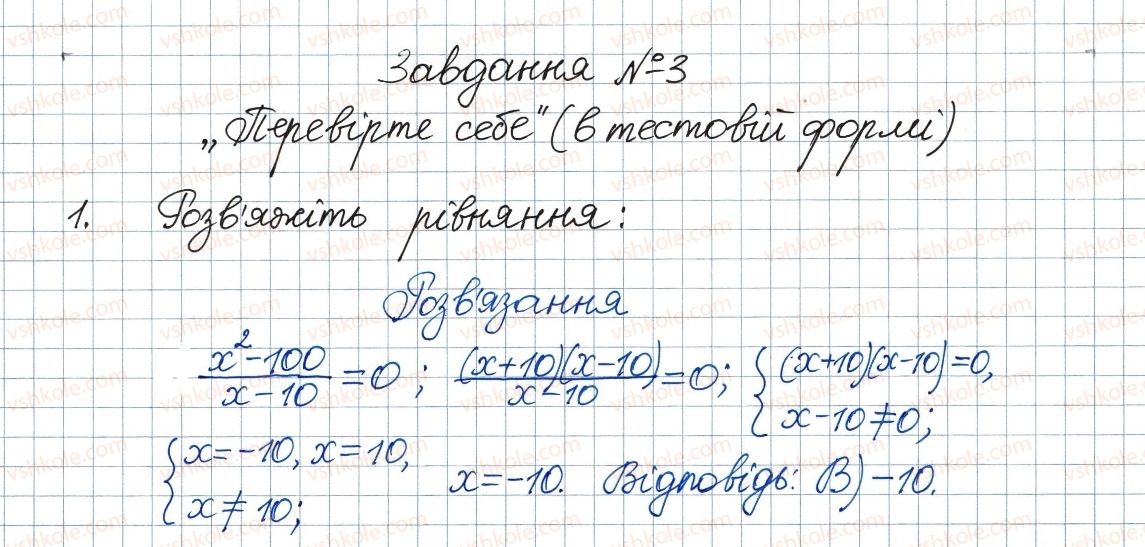 Завдання №3
„Перевірте себе" (в тестовій формі)
1. Розв'яжіть рівняння:
Розв'язання
(x²-100)/(x-10)=0; ((x+10)(x-10))/(x-10)=0; { (x+10)(x-10)=0, x-10≠0;
{ x=-10, x=10, x≠10; x=-10. Відповідь: В) -10.
vshkole.com